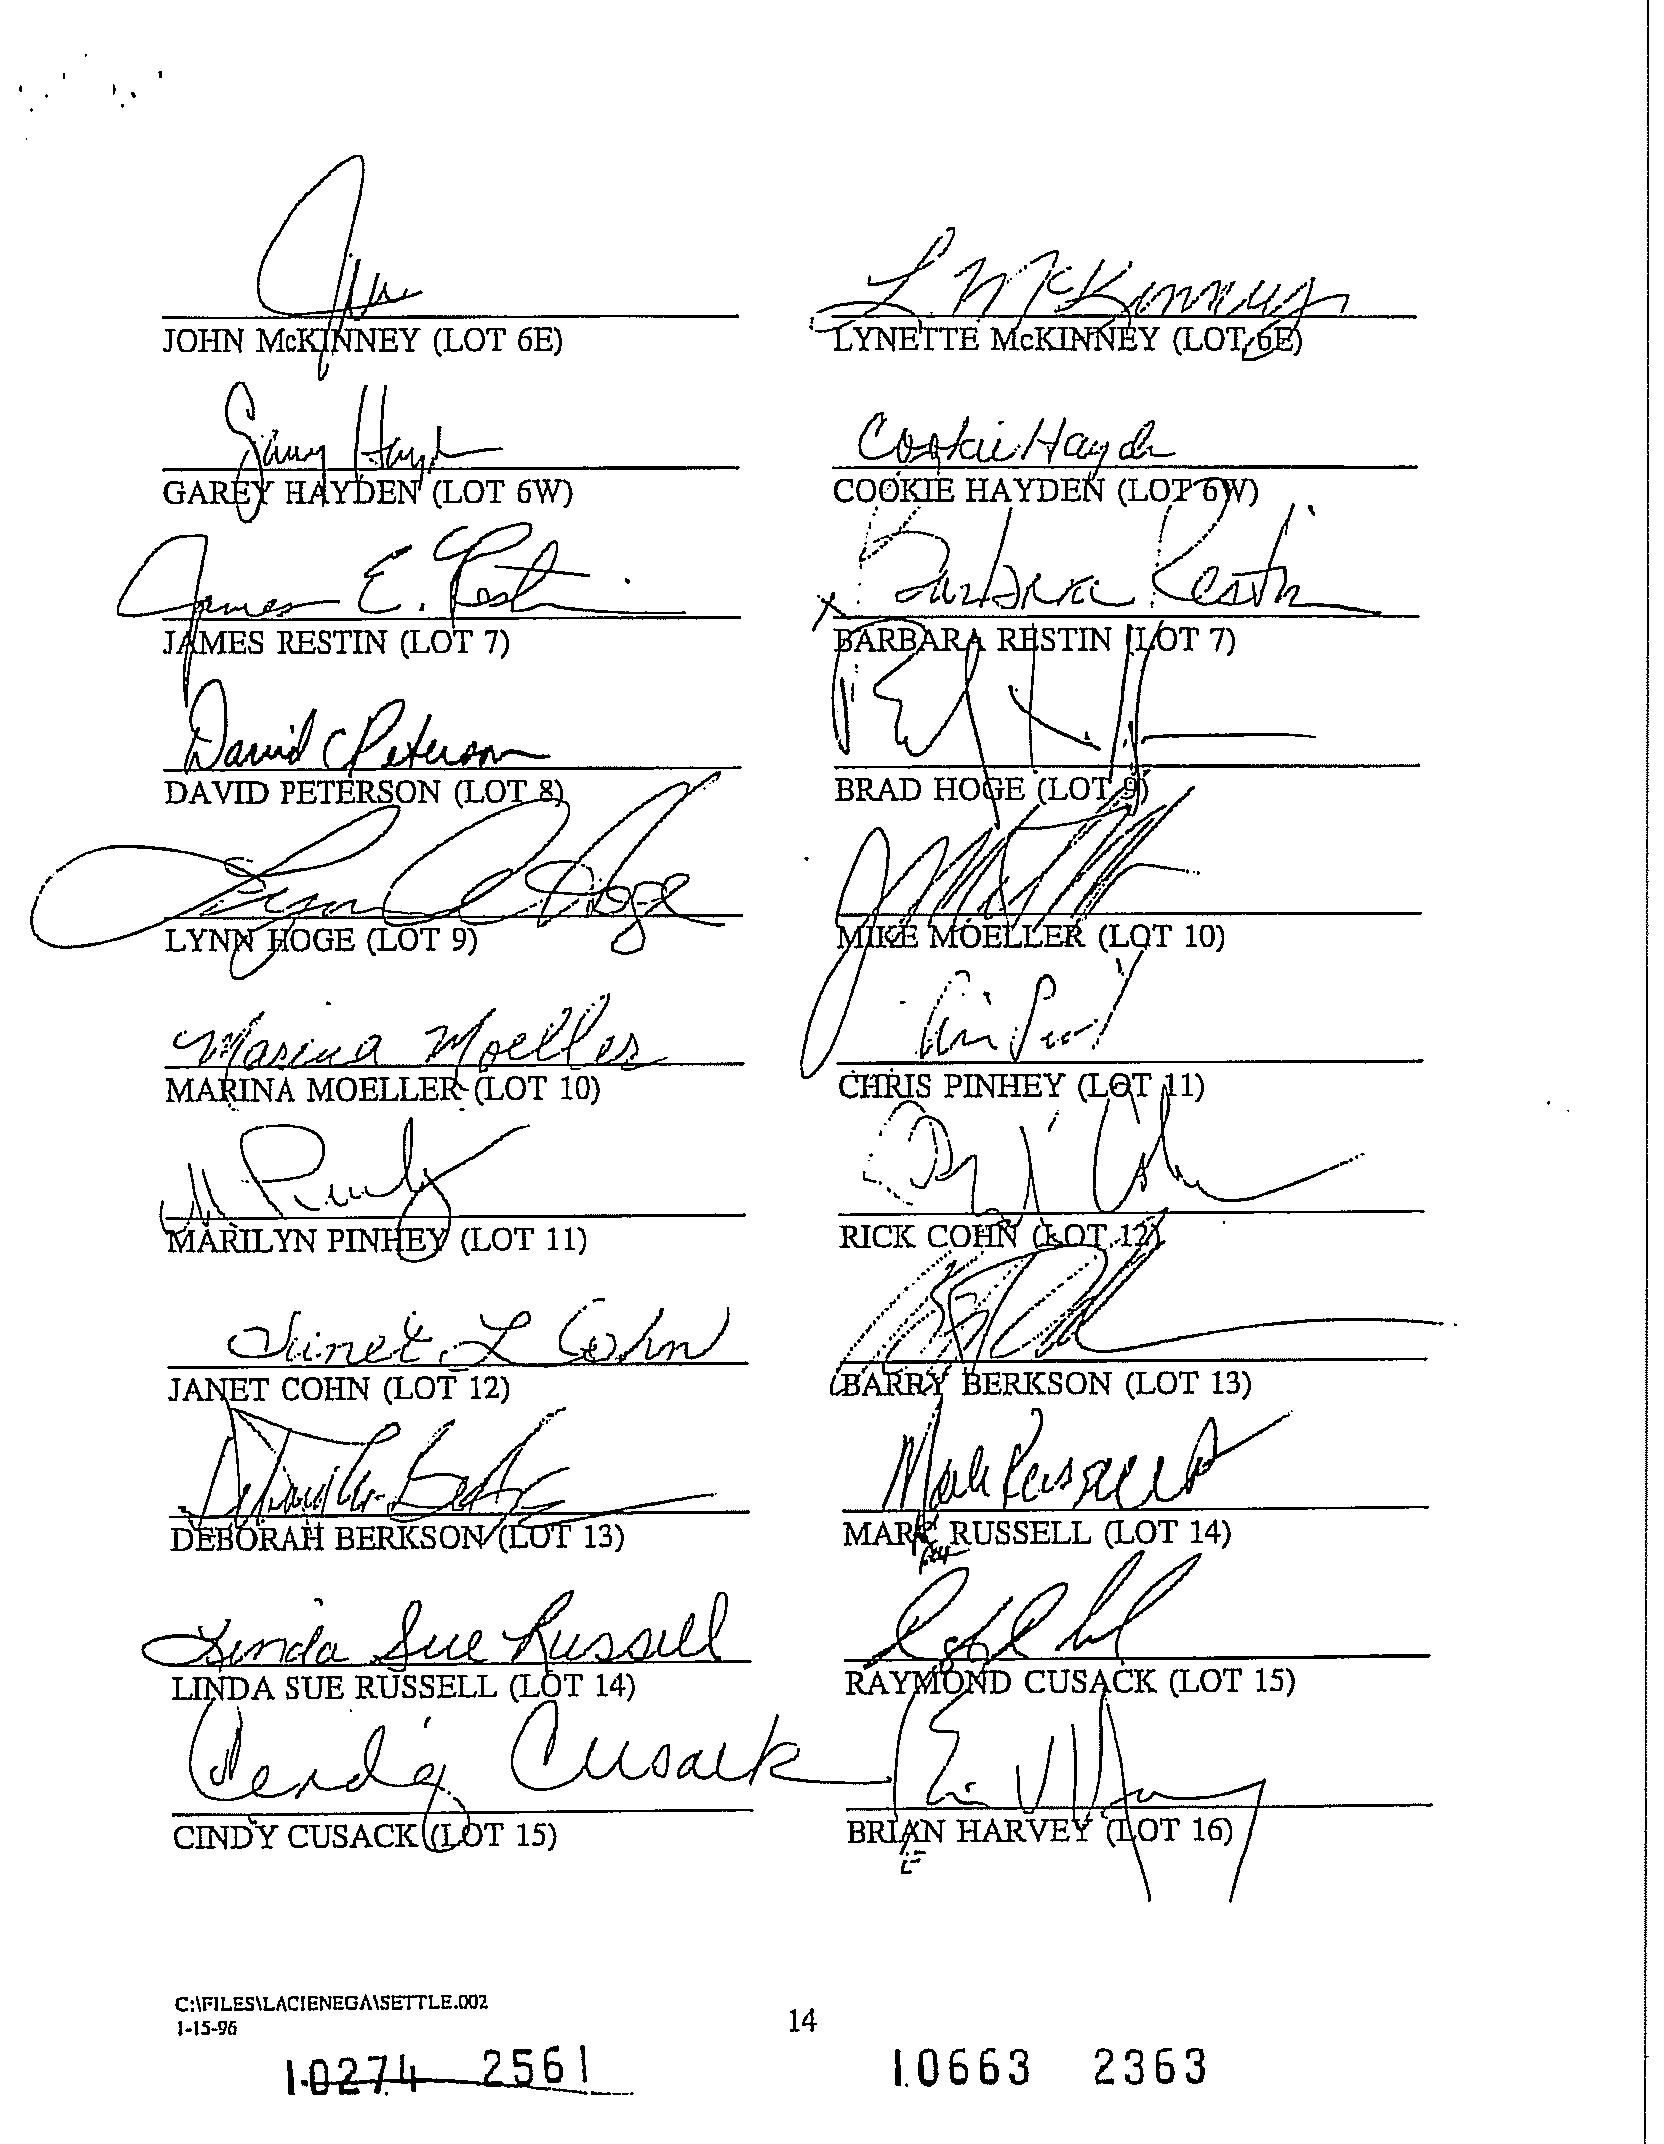 L McKinney
JOHN McKINNEY (LOT 6E) LYNETTE McKINNEY (LOT 6E)
Garey Hayden Cookie Hayden
GAREY HAYDEN (LOT 6W) COOKIE HAYDEN (LOT 6W)
James E. Restin Barbara Restin
JAMES RESTIN (LOT 7) x BARBARA RESTIN (LOT 7)
David C Peterson
DAVID PETERSON (LOT 8) BRAD HOGE (LOT 9)
Lynn A Hoge
LYNN HOGE (LOT 9) MIKE MOELLER (LOT 10)
Marina Moeller
MARINA MOELLER (LOT 10) CHRIS PINHEY (LOT 11)
MARILYN PINHEY (LOT 11) RICK COHN (LOT 12)
Janet L Cohn
JANET COHN (LOT 12) BARRY BERKSON (LOT 13)
Mark Russell
DEBORAH BERKSON (LOT 13) MARK RUSSELL (LOT 14)
Linda Sue Russell
LINDA SUE RUSSELL (LOT 14) RAYMOND CUSACK (LOT 15)
Cindy Cusack
CINDY CUSACK (LOT 15) BRIAN HARVEY (LOT 16)
C:\FILES\LACIENEGA\SETTLE.002
1-15-96
14
10274 2561 10663 2363